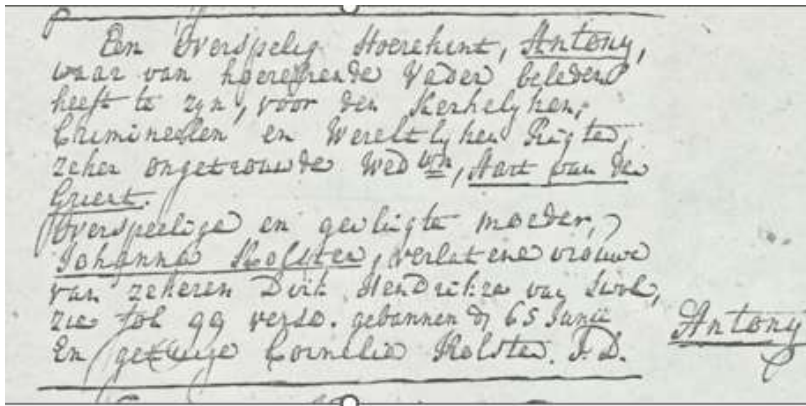 Een Overspelig Hoerekint, Antony,
waar van hoererende Vader beleden
heeft te zyn, voor den Kerkelyken,
Crimineelen en Wereltlyken Rigter,
zeker ongetrouwde Wed wn, Aart van de
Griert.
Overspeelige en geeligte moeder,
Johanna Kolster, verlatene vrouwe
van zekeren Dirk Hendrikze van
zie fol 99 verso. gebannen d 65 Junii
En getuige Cornelia Kolster. J. D.
Antony